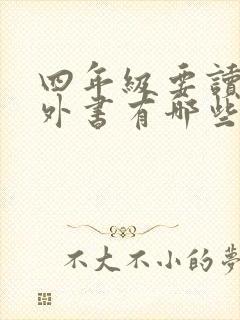 四年級要讀
外書有哪些
不大不小的夢